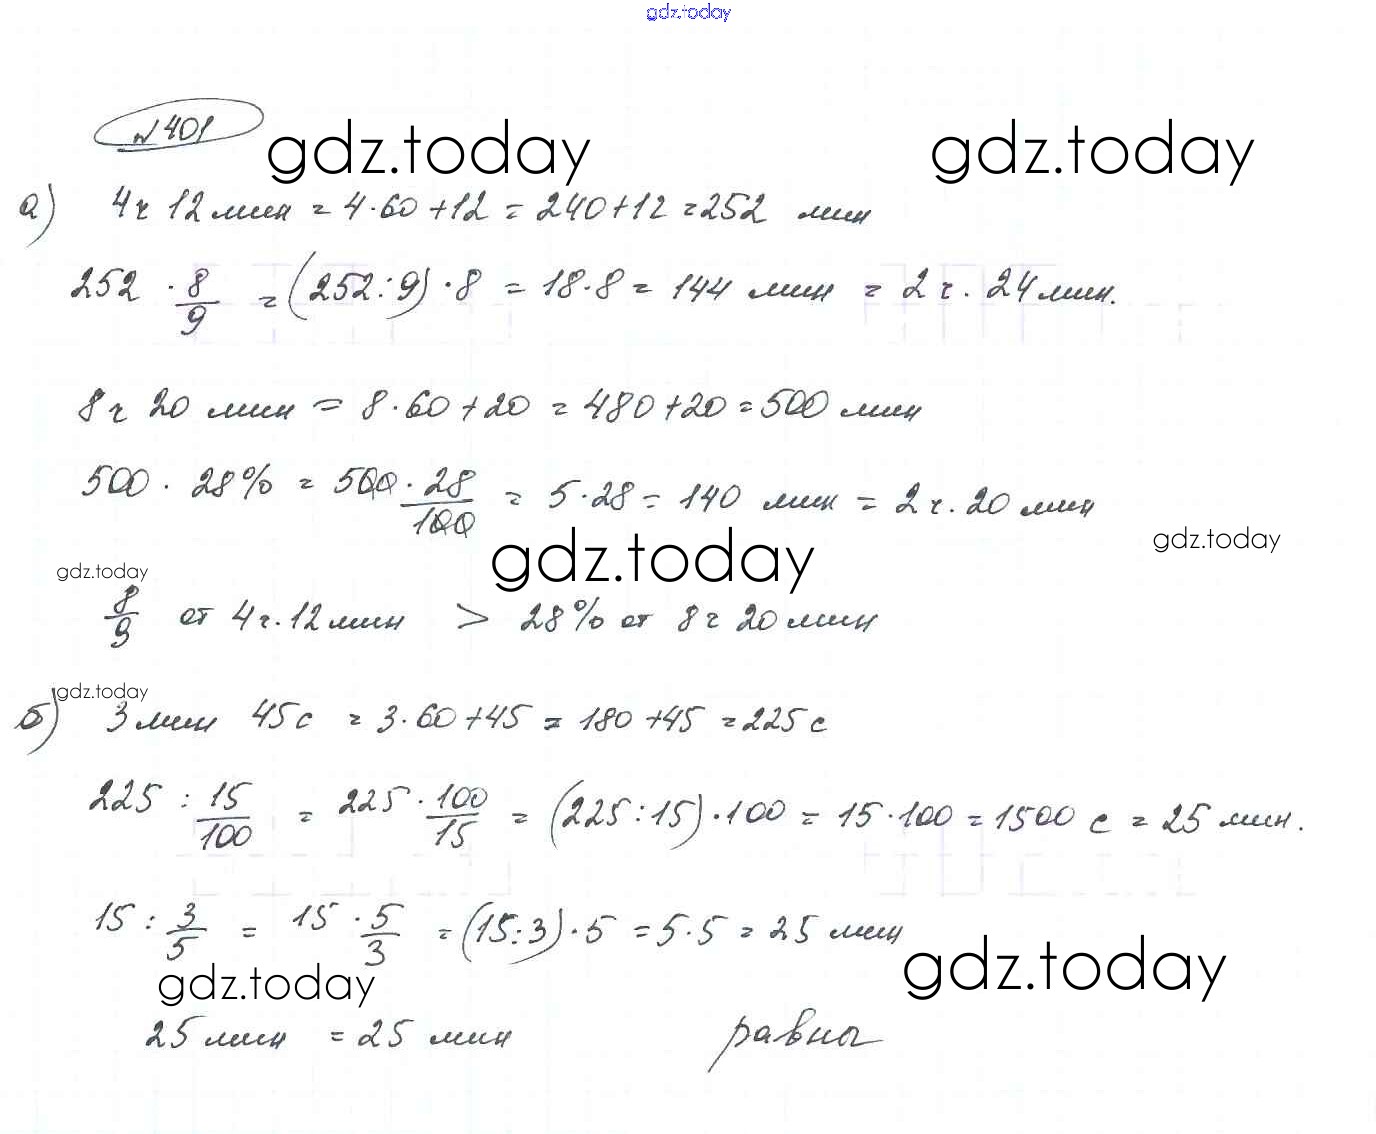 gdz.today
№ 401
gdz.today gdz.today
а) 4 ч 12 мин = 4·60+12 = 240+12 = 252 мин
252 · 8/9 = (252:9)·8 = 18·8 = 144 мин = 2 ч. 24 мин.
8 ч 20 мин = 8·60+20 = 480+20 = 500 мин
500 · 28% = 500·28/100 = 5·28 = 140 мин = 2 ч. 20 мин
gdz.today gdz.today
gdz.today
8/9 от 4 ч. 12 мин > 28% от 8 ч 20 мин
gdz.today
б) 3 мин 45 с = 3·60+45 = 180+45 = 225 с
225 : 15/100 = 225·100/15 = (225:15)·100 = 15·100 = 1500 с = 25 мин.
15 : 3/5 = 15·5/3 = (15:3)·5 = 5·5 = 25 мин
gdz.today gdz.today
25 мин = 25 мин равны